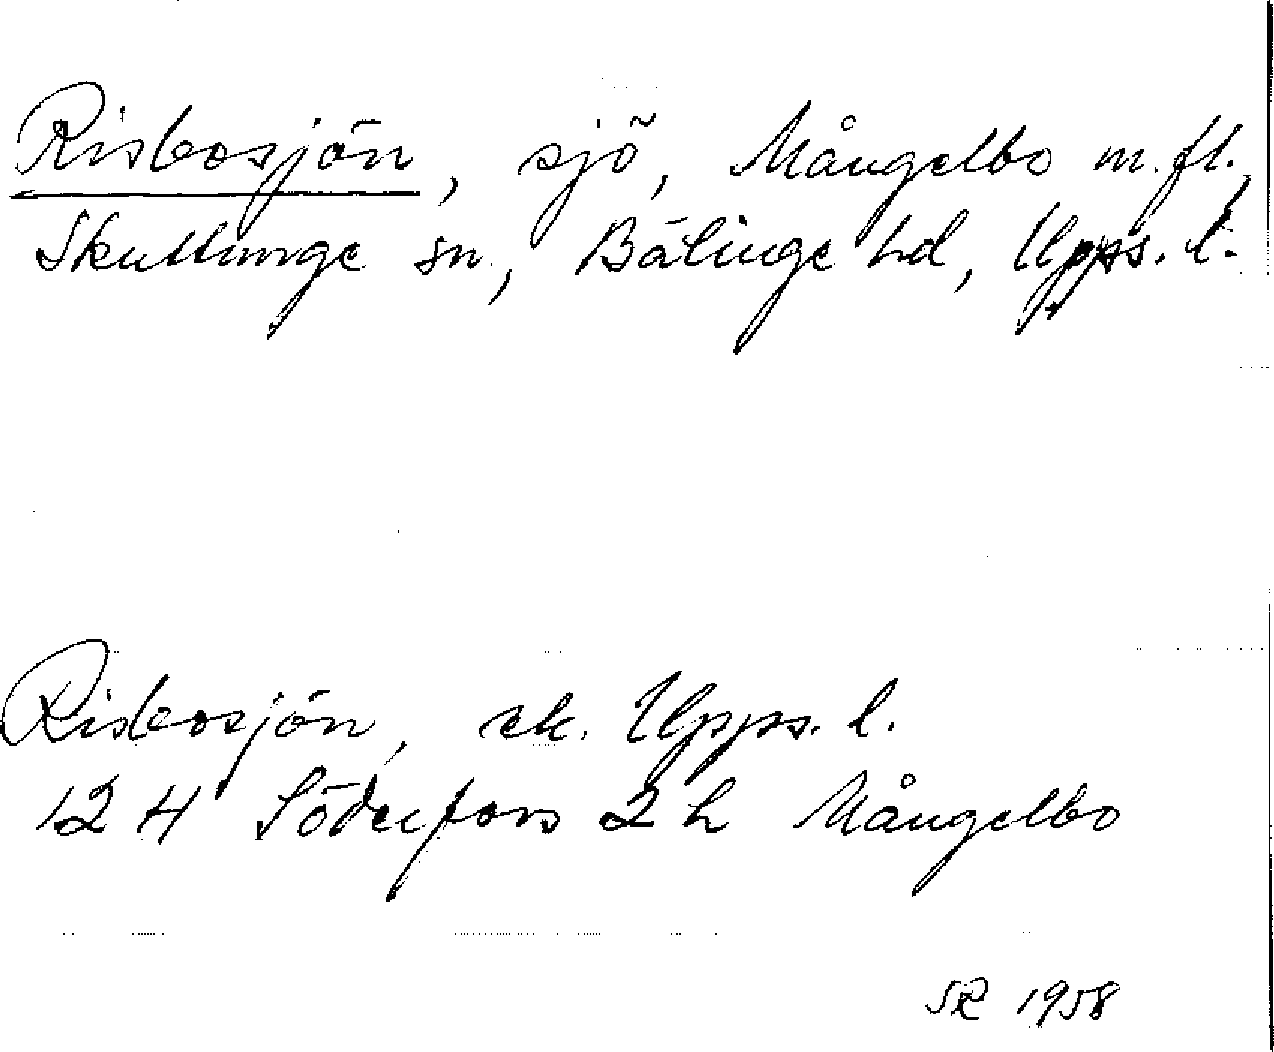 Risbosjön, sjö, Mångelbo m.fl.,
Skuttunge sn, Bälinge hd, Upps. l.
Risbosjön, ek. Upps. l.
12 H Söderfors 2 h Mångelbo
SR 1958